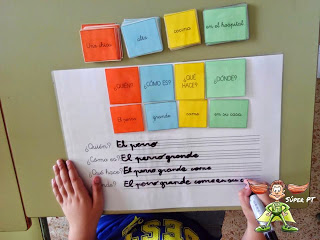 en el hospital
¿QUIÉN?
¿CÓMO ES?
¿QUÉ HACE?
¿DÓNDE?
El perro
grande
come
en su casa
¿Quién? El perro
¿Cómo es? El perro grande
¿Qué hace? El perro grande come
El perro grande come en su
SÚPER PT